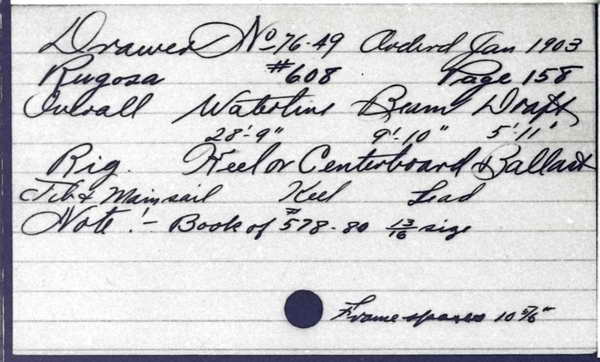 Drawer No 76-49 Ordered Jan 1903
Rugosa #608 Page 158
Overall Waterline Beam Draft
28'-9" 9'-10" 5'-11"
Rig. Keel or Centerboard Ballast
Jib & Mainsail Keel Lead
Note!- Book of #578-80 13/16 size
Frame spaces 10 5/8"